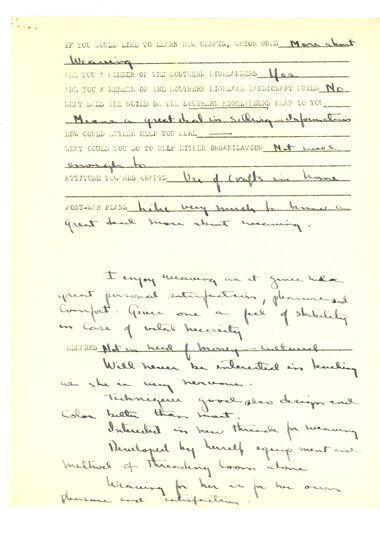 IF YOU WOULD LIKE TO LEARN NEW CRAFTS, WHICH ONES More about
Weaving
ARE YOU A MEMBER OF THE SOUTHERN HIGHLANDERS Yes
ARE YOU A MEMBER OF THE SOUTHERN HIGHLAND HANDICRAFT GUILD No
WHAT DOES THE GUILD OR THE SOUTHERN HIGHLANDERS MEAN TO YOU
Means a great deal in selling - Information
HOW COULD EITHER HELP YOU MORE
WHAT COULD YOU DO TO HELP EITHER ORGANIZATION Not well
enough to
ATTITUDE TOWARDS CRAFTS Use of crafts in home
POST-WAR PLANS Like very much to know a
great deal more about weaving.
I enjoy weaving as it gives me a
great personal satisfaction, pleasure and
comfort. Gives one a feel of stability
in case of vital necessity
REMARKS Not in need of money - cultured
Will never be interested in teaching
as she is very nervous.
Technique good also design and
Color better than most.
Interested in new threads for weaving
Developed by herself equipment and
method of threading loom alone
Weaving for her is for her own
pleasure and satisfaction.